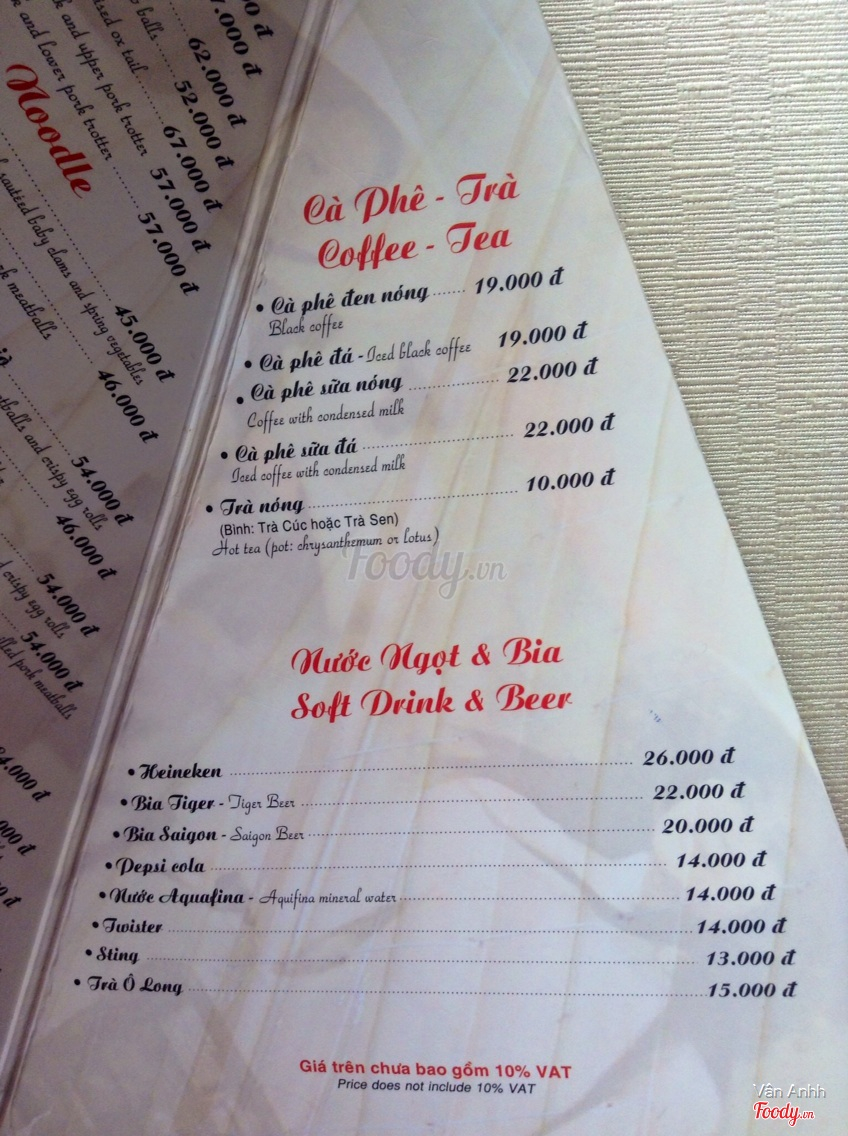 balls
7.000 đ
ox tail
62.000 đ
and upper pork trotter
52.000 đ
and lower pork trotter
67.000 đ
57.000 đ
57.000 đ
Noodle
sautéed baby clams and spring vegetables
45.000 đ
meatballs
46.000 đ
and crispy egg rolls
54.000 đ
46.000 đ
crispy egg rolls
54.000 đ
pork meatballs
54.000 đ
4.000 đ
Cà Phê - Trà
Coffee - Tea
• Cà phê đen nóng ....... 19.000 đ
Black coffee
• Cà phê đá - Iced black coffee 19.000 đ
• Cà phê sữa nóng ....... 22.000 đ
Coffee with condensed milk
• Cà phê sữa đá ....... 22.000 đ
Iced coffee with condensed milk
• Trà nóng ....... 10.000 đ
(Bình: Trà Cúc hoặc Trà Sen)
Hot tea (pot: chrysanthemum or lotus)
Foody.vn
Nước Ngọt & Bia
Soft Drink & Beer
• Heineken ....... 26.000 đ
• Bia Tiger - Tiger Beer ....... 22.000 đ
• Bia Saigon - Saigon Beer ....... 20.000 đ
• Pepsi cola ....... 14.000 đ
• Nước Aquafina - Aquifina mineral water ....... 14.000 đ
• Twister ....... 14.000 đ
• Sting ....... 13.000 đ
• Trà Ô Long ....... 15.000 đ
Giá trên chưa bao gồm 10% VAT
Price does not include 10% VAT
Vân Anhh
Foody.vn